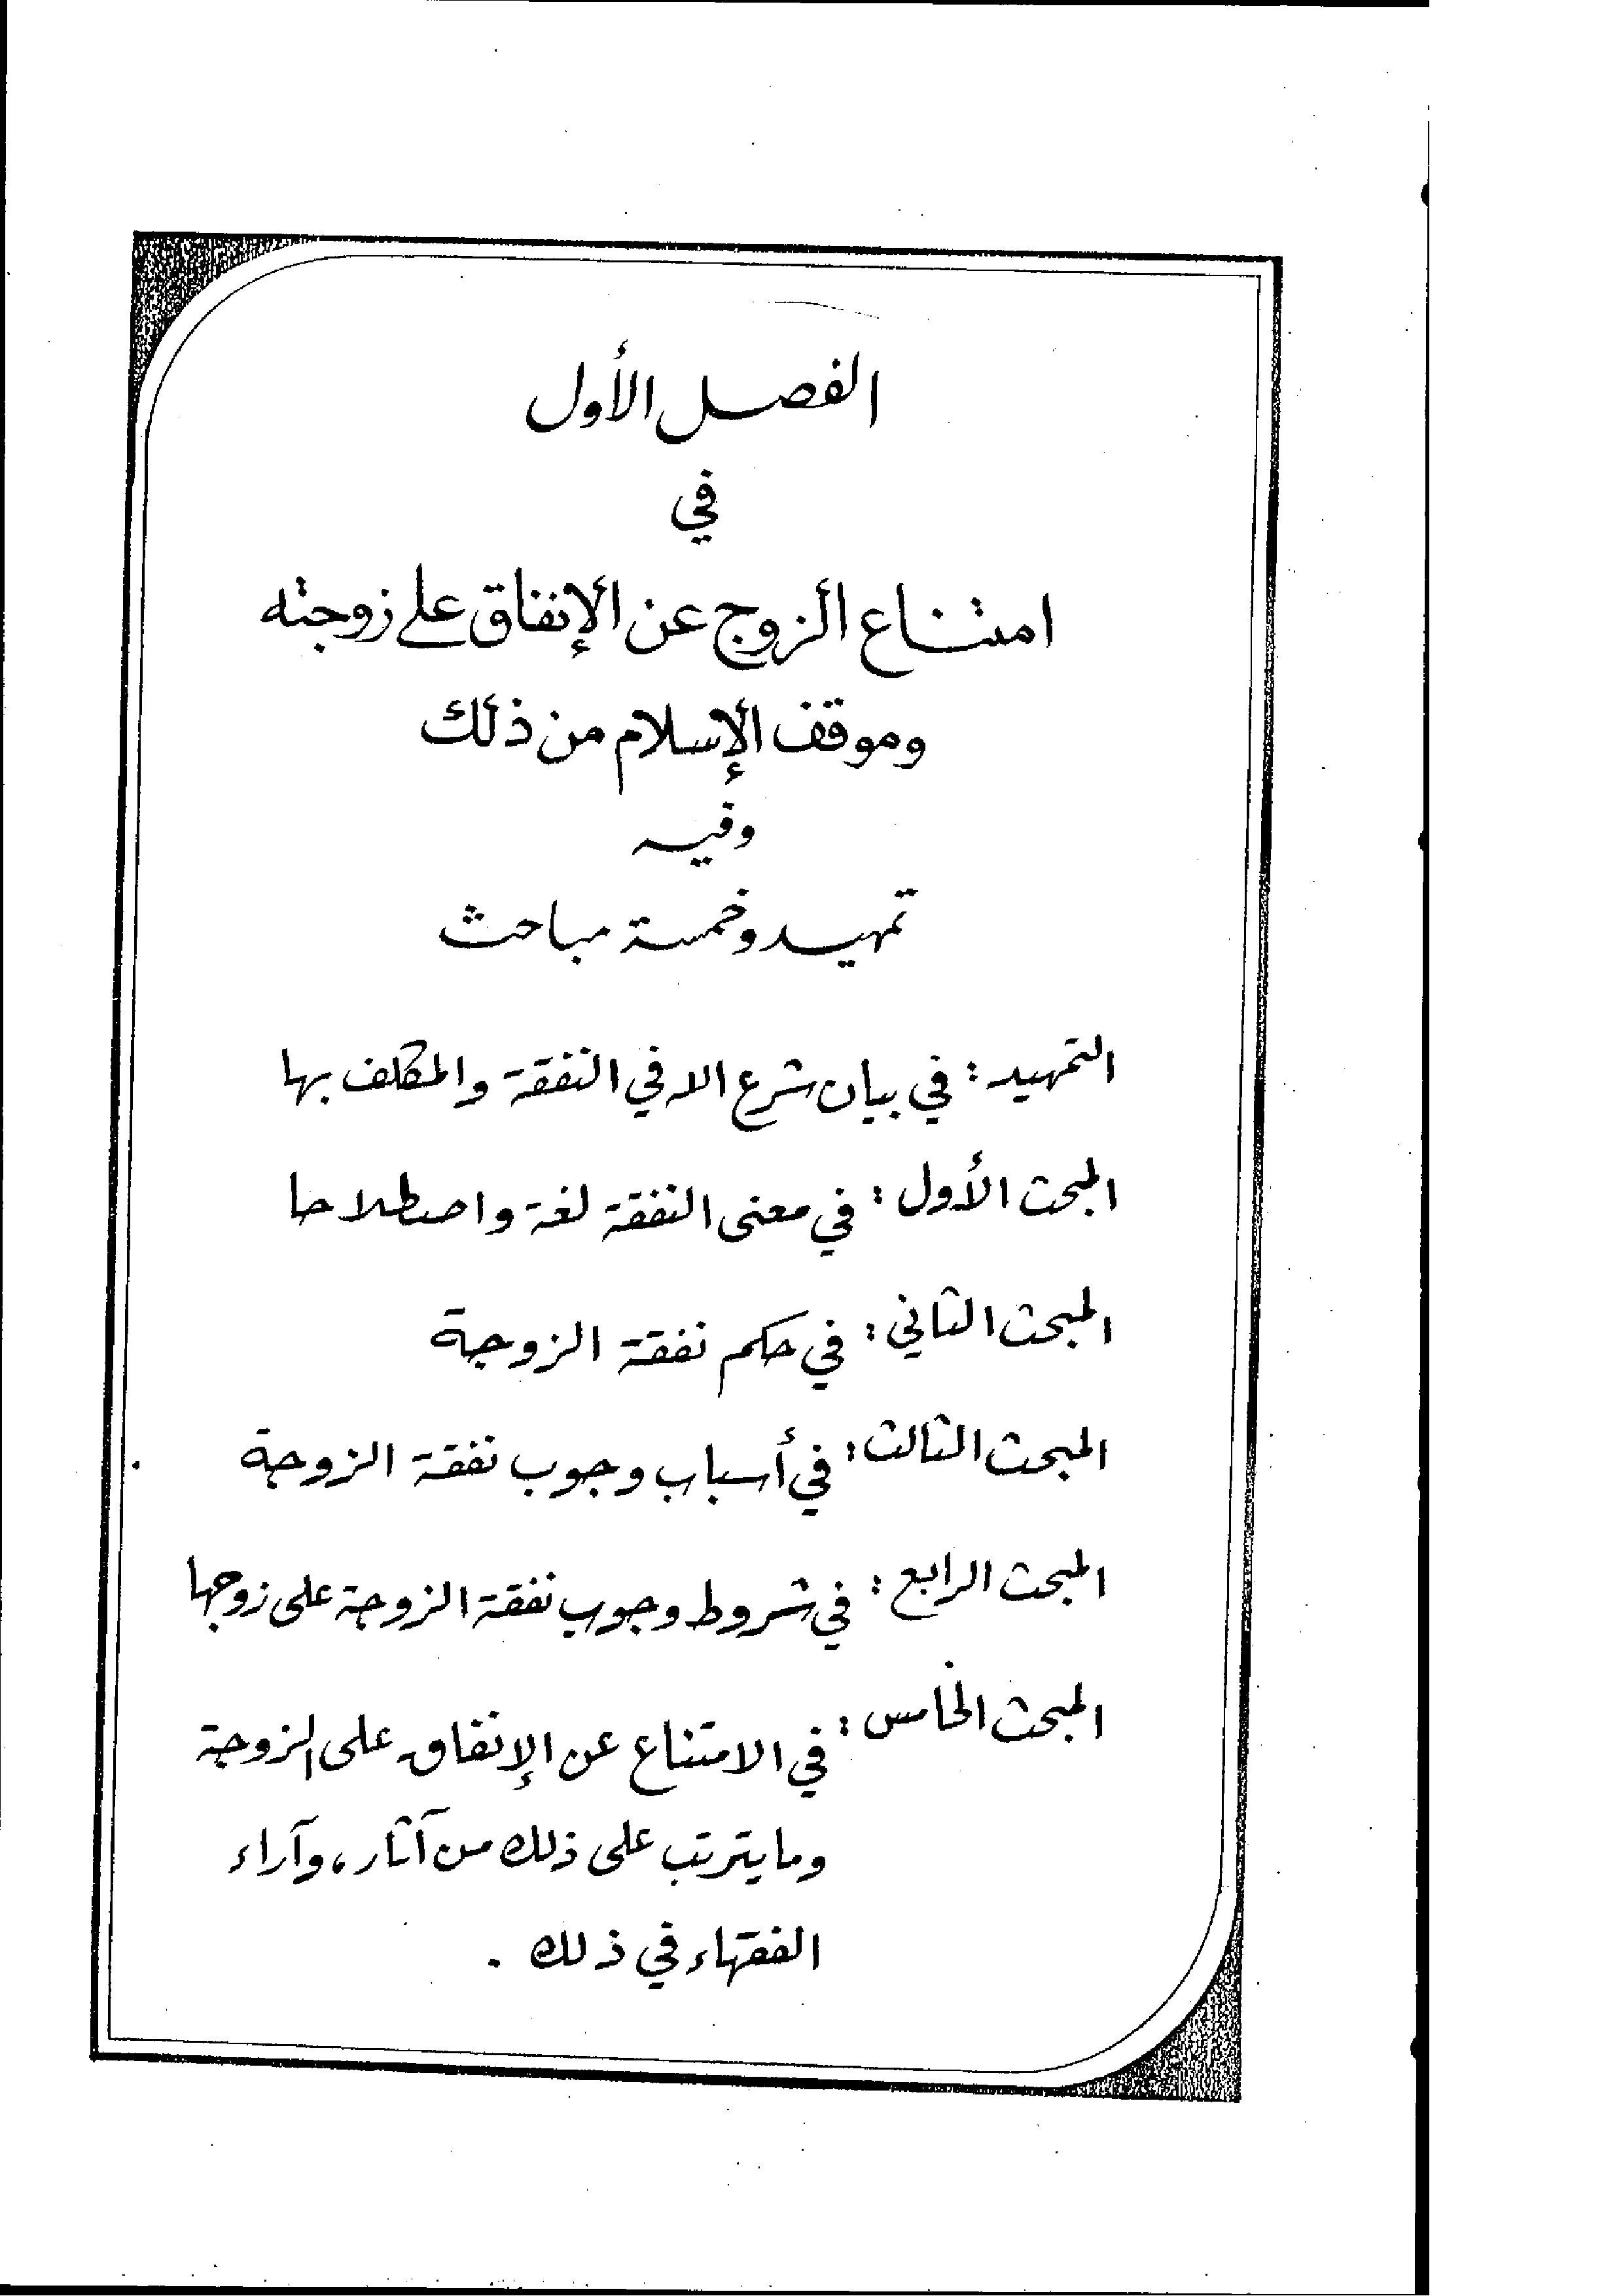 الفصل الأول
في
امتناع الزوج عن الإنفاق على زوجته
وموقف الإسلام من ذلك
وفيه
تمهيد وخمسة مباحث
التمهيد: في بيان شرع الله في النفقة والمكلف بها
المبحث الأول: في معنى النفقة لغة واصطلاحا
المبحث الثاني: في حكم نفقة الزوجة
المبحث الثالث: في أسباب وجوب نفقة الزوجة
المبحث الرابع: في شروط وجوب نفقة الزوجة على زوجها
المبحث الخامس: في الامتناع عن الإنفاق على الزوجة
وما يترتب على ذلك من آثار، وآراء
الفقهاء في ذلك .